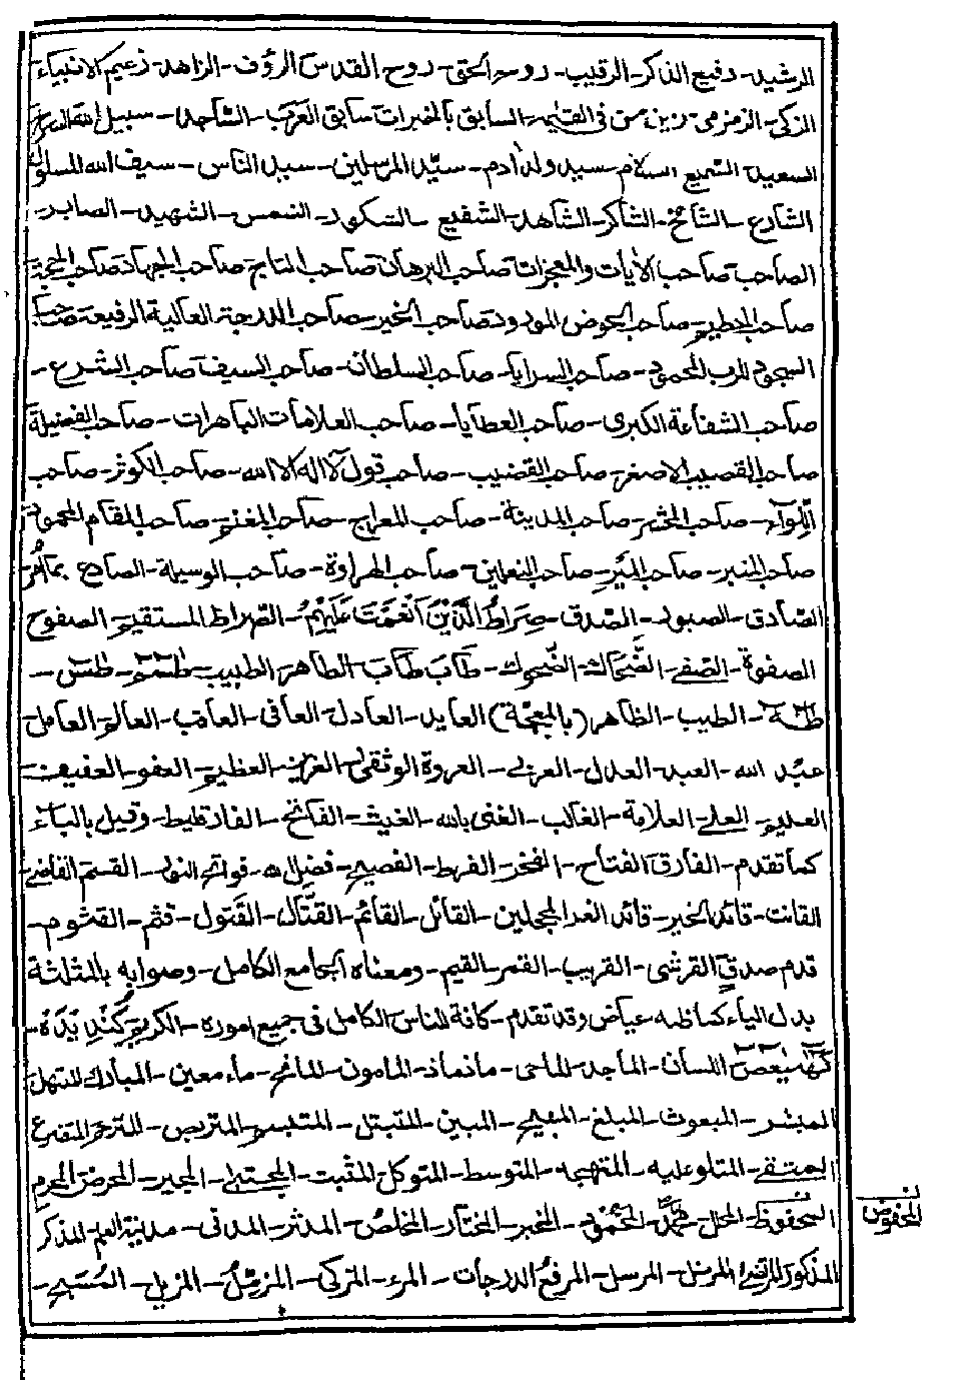 المرشيد - رفيع الذكر - الرقيب - روح الحق - روح القدس الرؤف - الزاهد - زعيم الانبياء -
الزكي - الزمزمي - زين من في القيمة - السابق بالخيرات سابق العرب - الساجد - سبيل الله
السعيد السميع السلام - سيد ولد اٰدم - سيّد المرسلين - سيد الناس - سيف الله المسلول
الشارع - الشامخ - الشاكر - الشاهد - الشفيع - الشكور - الشمس - الشهيد - الصابر -
الصاحب صاحب الاٰيات والمعجزات صاحب البرهان صاحب التاج صاحب الجهاد صاحب الحجة
صاحب الحطيم - صاحب الحوض المورود صاحب الخير - صاحب الدرجة العالية الرفيعة صاحب
السجود للرب المحمود - صاحب السرايا - صاحب السلطان - صاحب السيف صاحب الشرع -
صاحب الشفاعة الكبرى - صاحب العطايا - صاحب العلامات الباهرات - صاحب الفضيلة
صاحب القصيب الاصغر صاحب القضيب - صاحب قول لا اله الا الله - صاحب الكوثر - صاحب
اللوآء - صاحب المحشر - صاحب المدينة - صاحب المعراج - صاحب المغنم - صاحب المقام المحمود
صاحب المنبر - صاحب الميزر - صاحب النعلين - صاحب الهراوة - صاحب الوسيلة - الصادع بما اُمر
الصادق - الصبور - الصدق - صِرَاطُ الَّذِيْنَ اَنْعَمْتَ عَلَيْهِمْ - الصراط المستقيم - الصفوح
الصفوة - الصفي - الضَّحَّاك - الضحوك - طَابَ طَابَ الطاهر الطبيب - طسم - طس -
طه - الطيب - الظاهر (بالمعجمة) العابد - العادل - العافى - العاقب - العالم - العامل
عبد الله - العبد - العدل - العربي - العروة الوثقى - العزيز - العظيم - العفو - العفيف -
العليم - العلي - العلامة - الغالب - الغنى بالله - الغيث - الفاتح - الفارقليط - وقيل بالباء
كما تقدم - الفارق الفتاح - الفخر - الفرط - الفصيح - فضل الله - فواتح النور - القسم القاضي
القانت - قائد الخير - قائد الغر المحجلين - القائل - القائم - القتال - القَتول - قثم - القثوم -
قدم صدق القرشي - القريب - القمر - القيم - ومعناه الجامع الكامل - وصوابه بالمثلثة
بدل الياء كما ظنه عياض وقد تقدم - كافة للناس الكامل في جميع اموره - الكريم كَنْدِيْدَة -
كهيعص اللسان - الماجد - الماحى - ماذماذ - المامون - المانح - ماء معين - المبارك المبتهل
المبشر - المبعوث - المبلغ - المبيح - المبين - المتبتل - المتبسم - المتربص - المترحم المتضرع
المتقى - المتلو عليه - المتهجد - المتوسط - المتوكل المثبت - المجتبى - المجير - المحرض المحرم
المحفوظ - المحلل محمد - المحمود - المخبر - المختار - المخلص - المدثر - المدنى - مدينة العلم - المذكر
المذكور - المرتضى المرتل - المرسل - المرفع الدرجات - المرء - المزكى - المزمِّل - المزيل - المُسَبِّح -
المحفوض